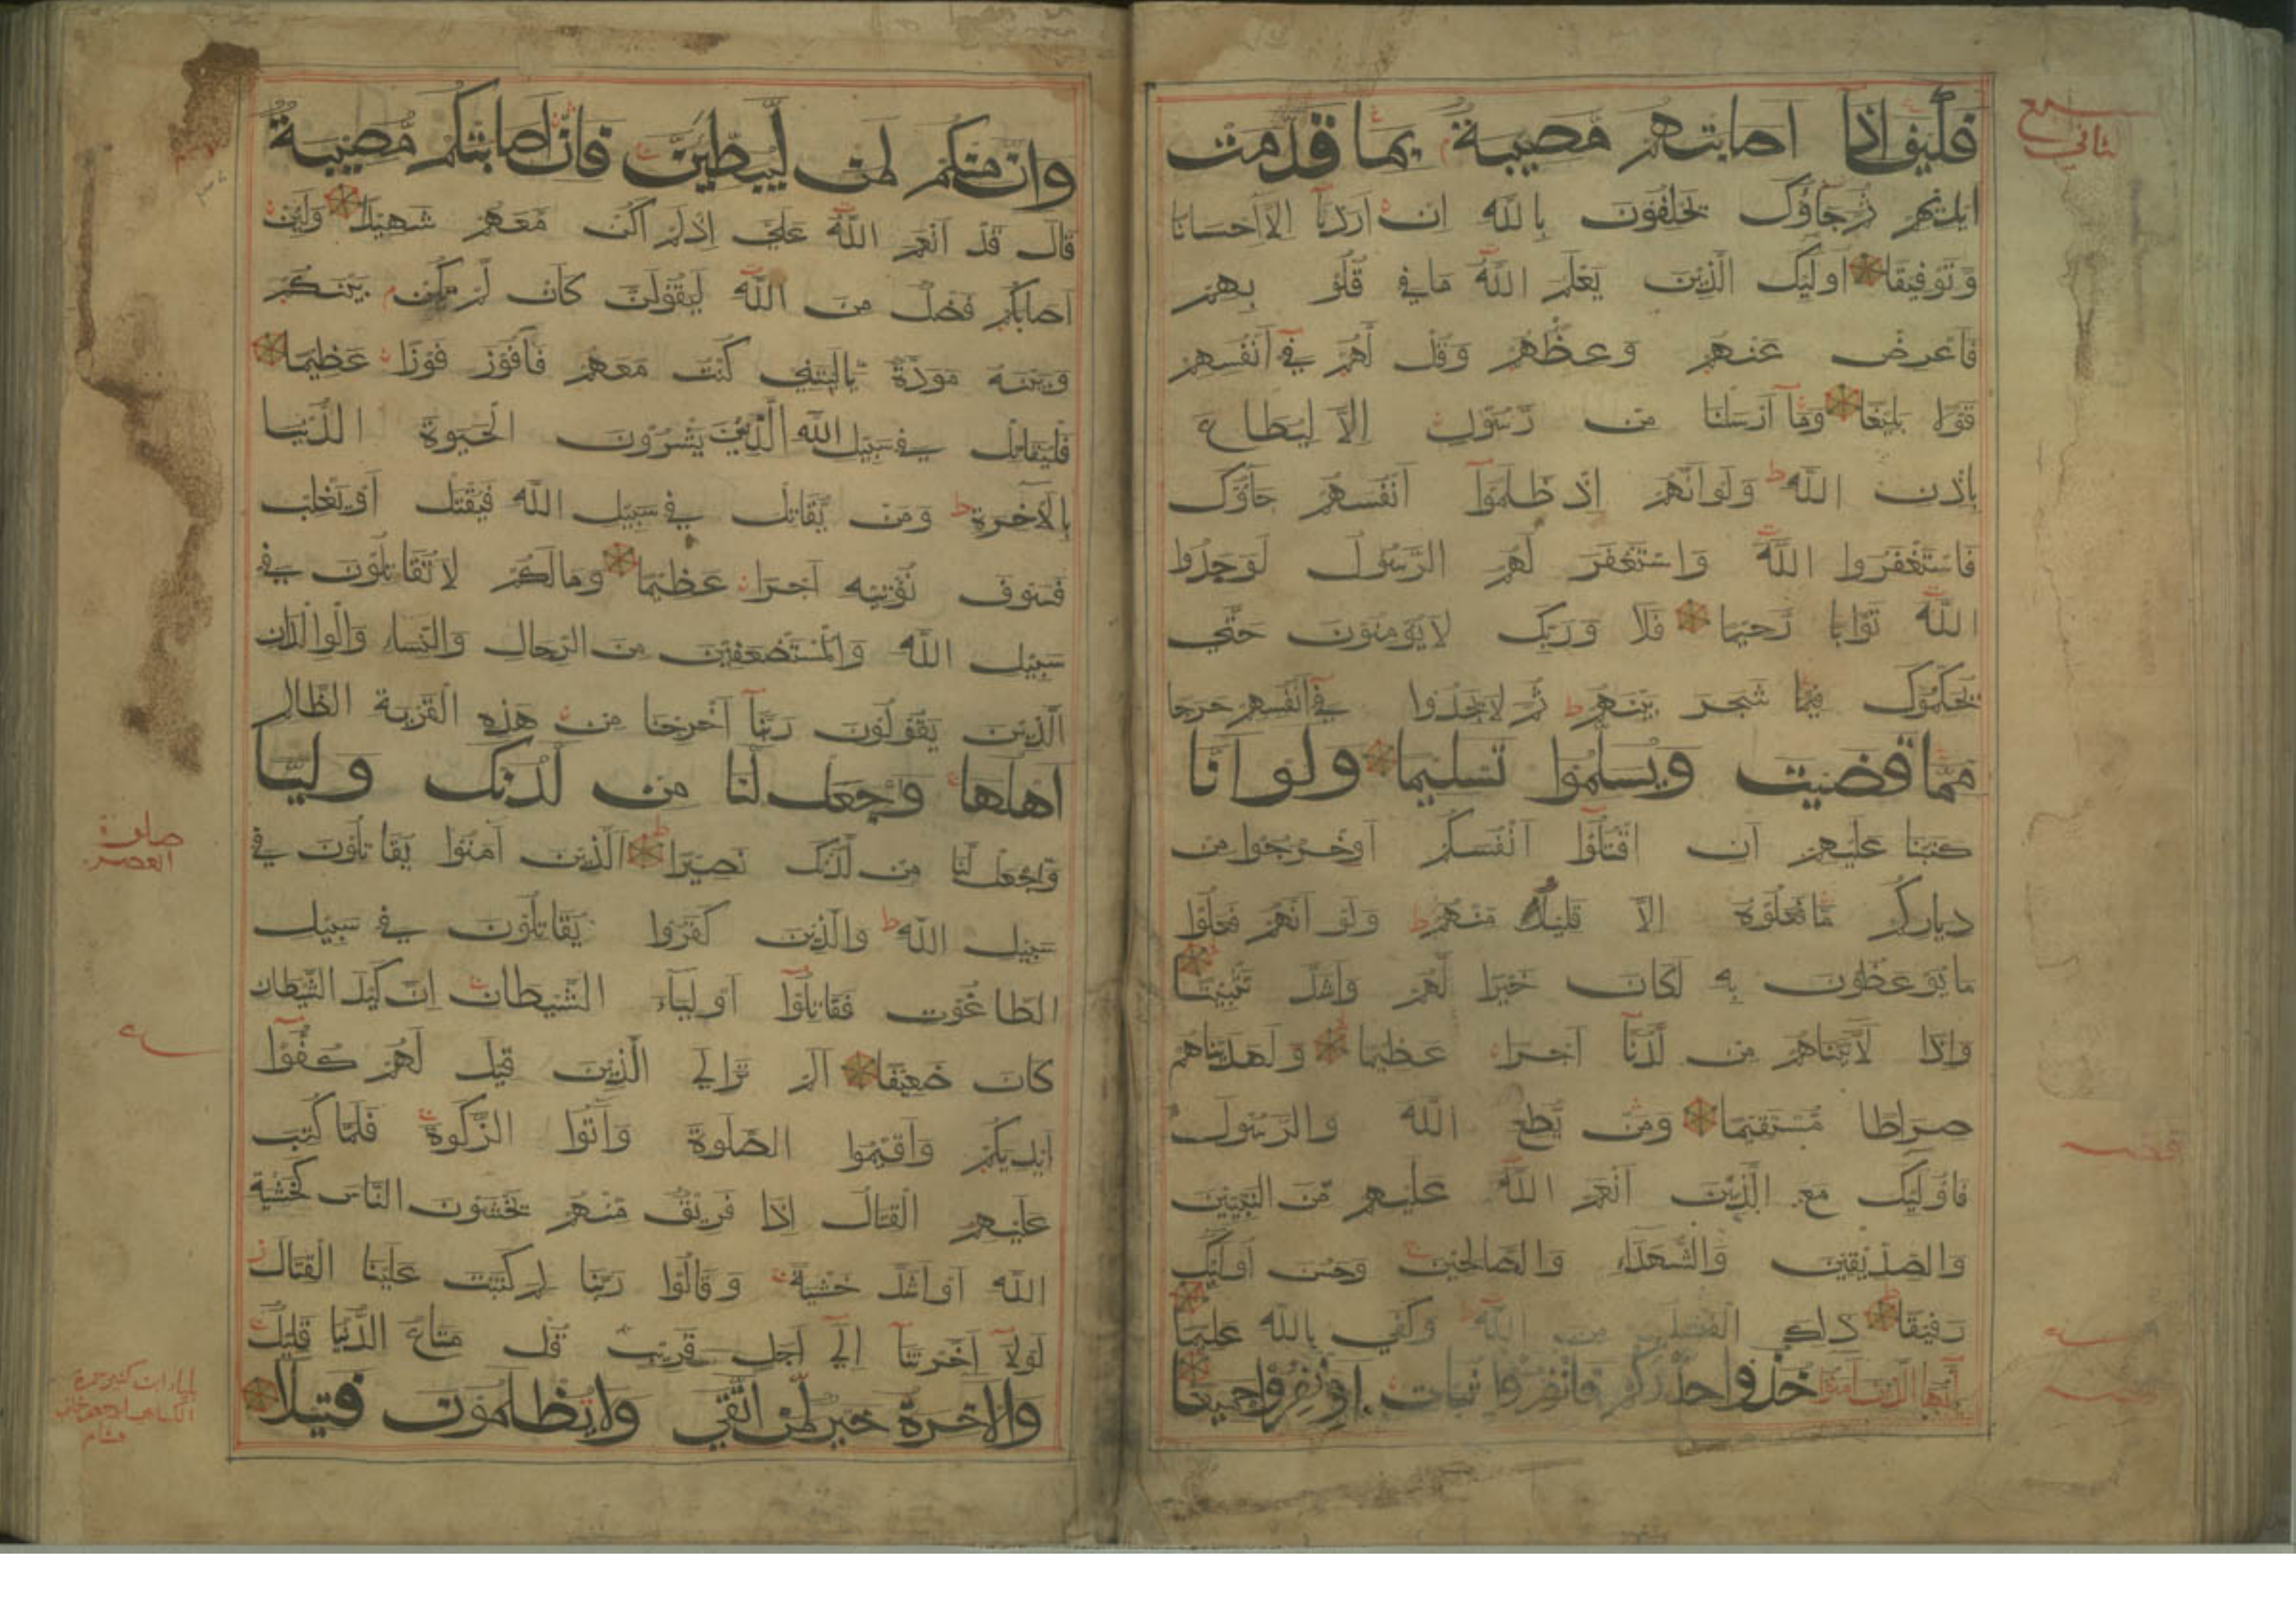 سبع
الثاني
فكيف اذا اصابتهم مصيبة بما قدمت
ايديهم ثم جاؤك يحلفون بالله ان اردنا الا احسانا
وتوفيقا اولئك الذين يعلم الله ما في قلو بهم
فاعرض عنهم وعظهم وقل لهم في انفسهم
قولا بليغا وما ارسلنا من رسول الا ليطاع
باذن الله ولو انهم اذ ظلموا انفسهم جاؤك
فاستغفروا الله واستغفر لهم الرسول لوجدوا
الله توابا رحيما فلا وربك لا يؤمنون حتى
يحكموك فيما شجر بينهم ثم لا يجدوا في انفسهم حرجا
مما قضيت ويسلموا تسليما ولو انا
كتبنا عليهم ان اقتلوا انفسكم او اخرجوا من
دياركم ما فعلوه الا قليل منهم ولو انهم فعلوا
ما يوعظون به لكان خيرا لهم واشد تثبيتا
واذا لاتيناهم من لدنا اجرا عظيما ولهديناهم
صراطا مستقيما ومن يطع الله والرسول
فاولئك مع الذين انعم الله عليهم من النبيين
والصديقين والشهداء والصالحين وحسن اولئك
رفيقا ذلك الفضل من الله وكفى بالله عليما
يايها الذين امنوا خذوا حذركم فانفروا ثبات او انفروا جميعا
وان منكم لمن ليبطئن فان اصابتكم مصيبة
قال قد انعم الله علي اذ لم اكن معهم شهيدا ولئن
اصابكم فضل من الله ليقولن كان لم تكن بينكم
وبينه مودة ياليتني كنت معهم فافوز فوزا عظيما
فليقاتل في سبيل الله الذين يشرون الحيوة الدنيا
بالآخرة ومن يقاتل في سبيل الله فيقتل او يغلب
فسوف نؤتيه اجرا عظيما وما لكم لا تقاتلون في
سبيل الله والمستضعفين من الرجال والنساء والولدان
الذين يقولون ربنا اخرجنا من هذه القرية الظالم
اهلها واجعل لنا من لدنك وليا
واجعل لنا من لدنك نصيرا الذين آمنوا يقاتلون في
سبيل الله والذين كفروا يقاتلون في سبيل
الطاغوت فقاتلوا اولياء الشيطان ان كيد الشيطان
كان ضعيفا الم تر الي الذين قيل لهم كفوا
ايديكم واقيموا الصلوة وآتوا الزكوة فلما كتب
عليهم القتال اذا فريق منهم يخشون الناس كخشية
الله او اشد خشية وقالوا ربنا لم كتبت علينا القتال
لولا اخرتنا الي اجل قريب قل متاع الدنيا قليل
والاخرة خير لمن اتقي ولا يظلمون فتيلا
صلوة
العصر